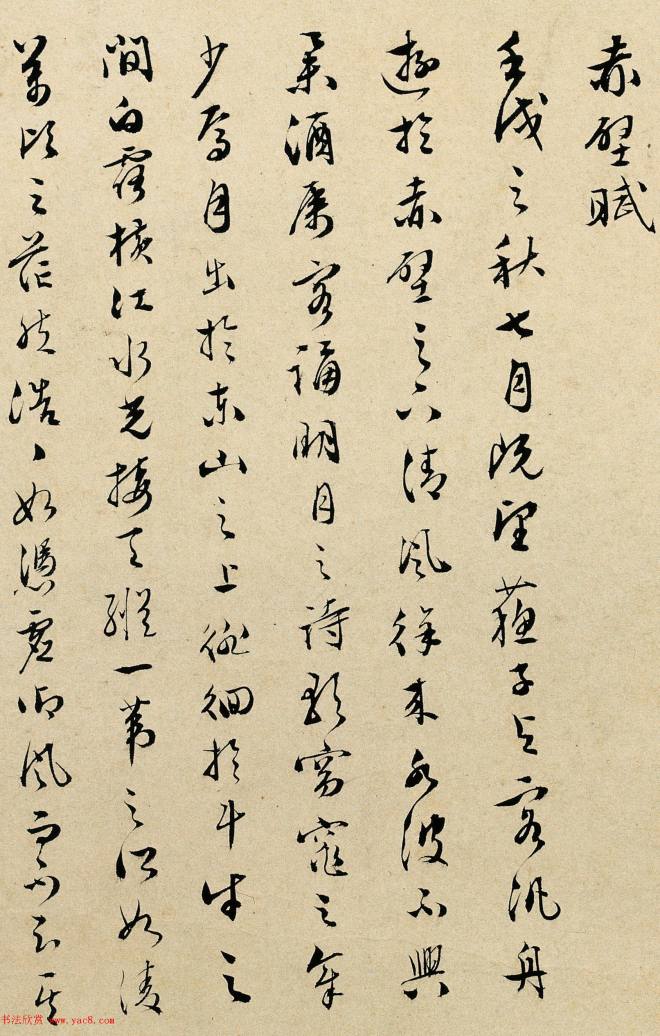 赤壁賦
壬戌之秋七月既望蘇子与客汎舟
遊於赤壁之下清風徐来水波不興
舉酒屬客誦明月之詩歌窈窕之章
少焉月出於東山之上徘徊於斗牛之
間白露横江水光接天縱一葦之所如凌
萬頃之茫然浩〻如憑虚御風而不知其
书法欣赏 www.yac8.com